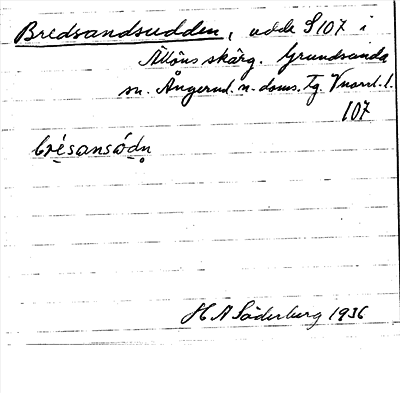 Bredsandsudden, udde S 107 i
skärg. Grundsunda
sn. Ångerml. n. doms. Tg. Vnorrl. l.
107
brésansódn
H A Söderberg 1936